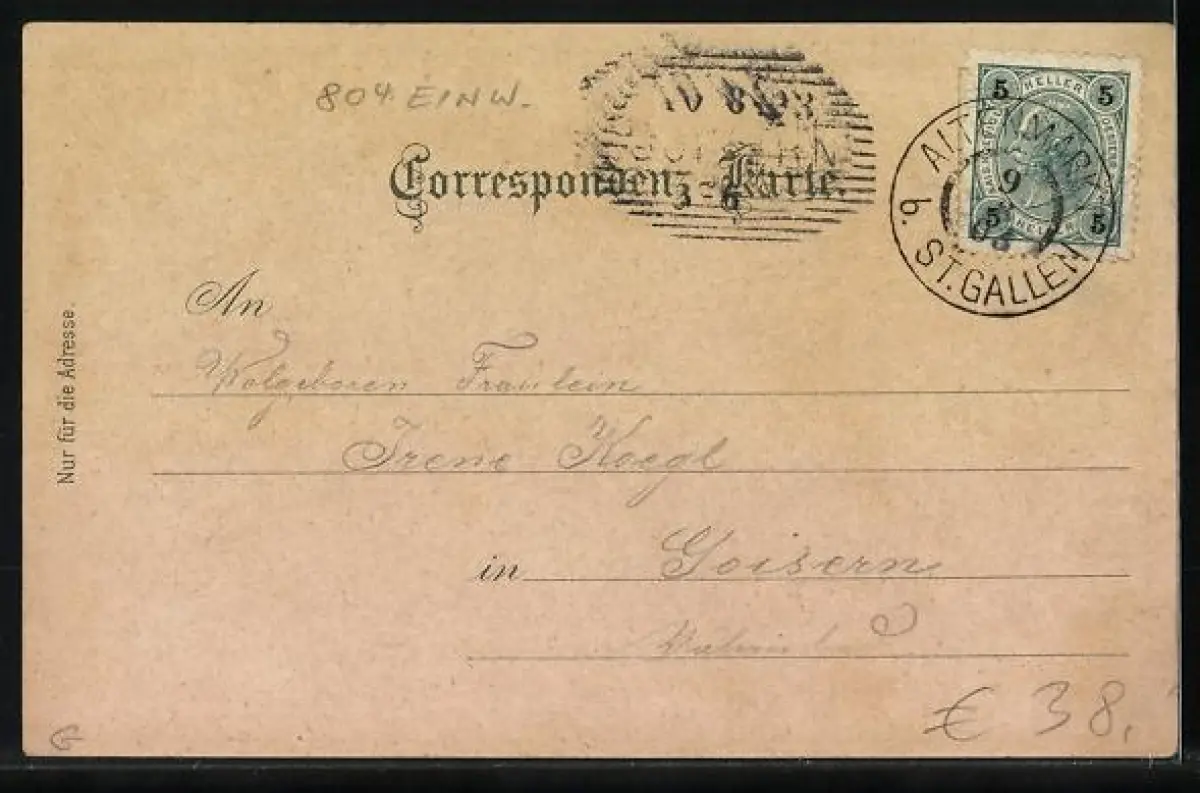 804. EINW.
10 8
Correspondenz-Karte.
3-6
5 HELLER 5
5 HELLER 5
9
b. ST. GALLEN
Nur für die Adresse.
An
Wolgeboren Fräulein
Irene Koegl
in Goisern
€ 38,